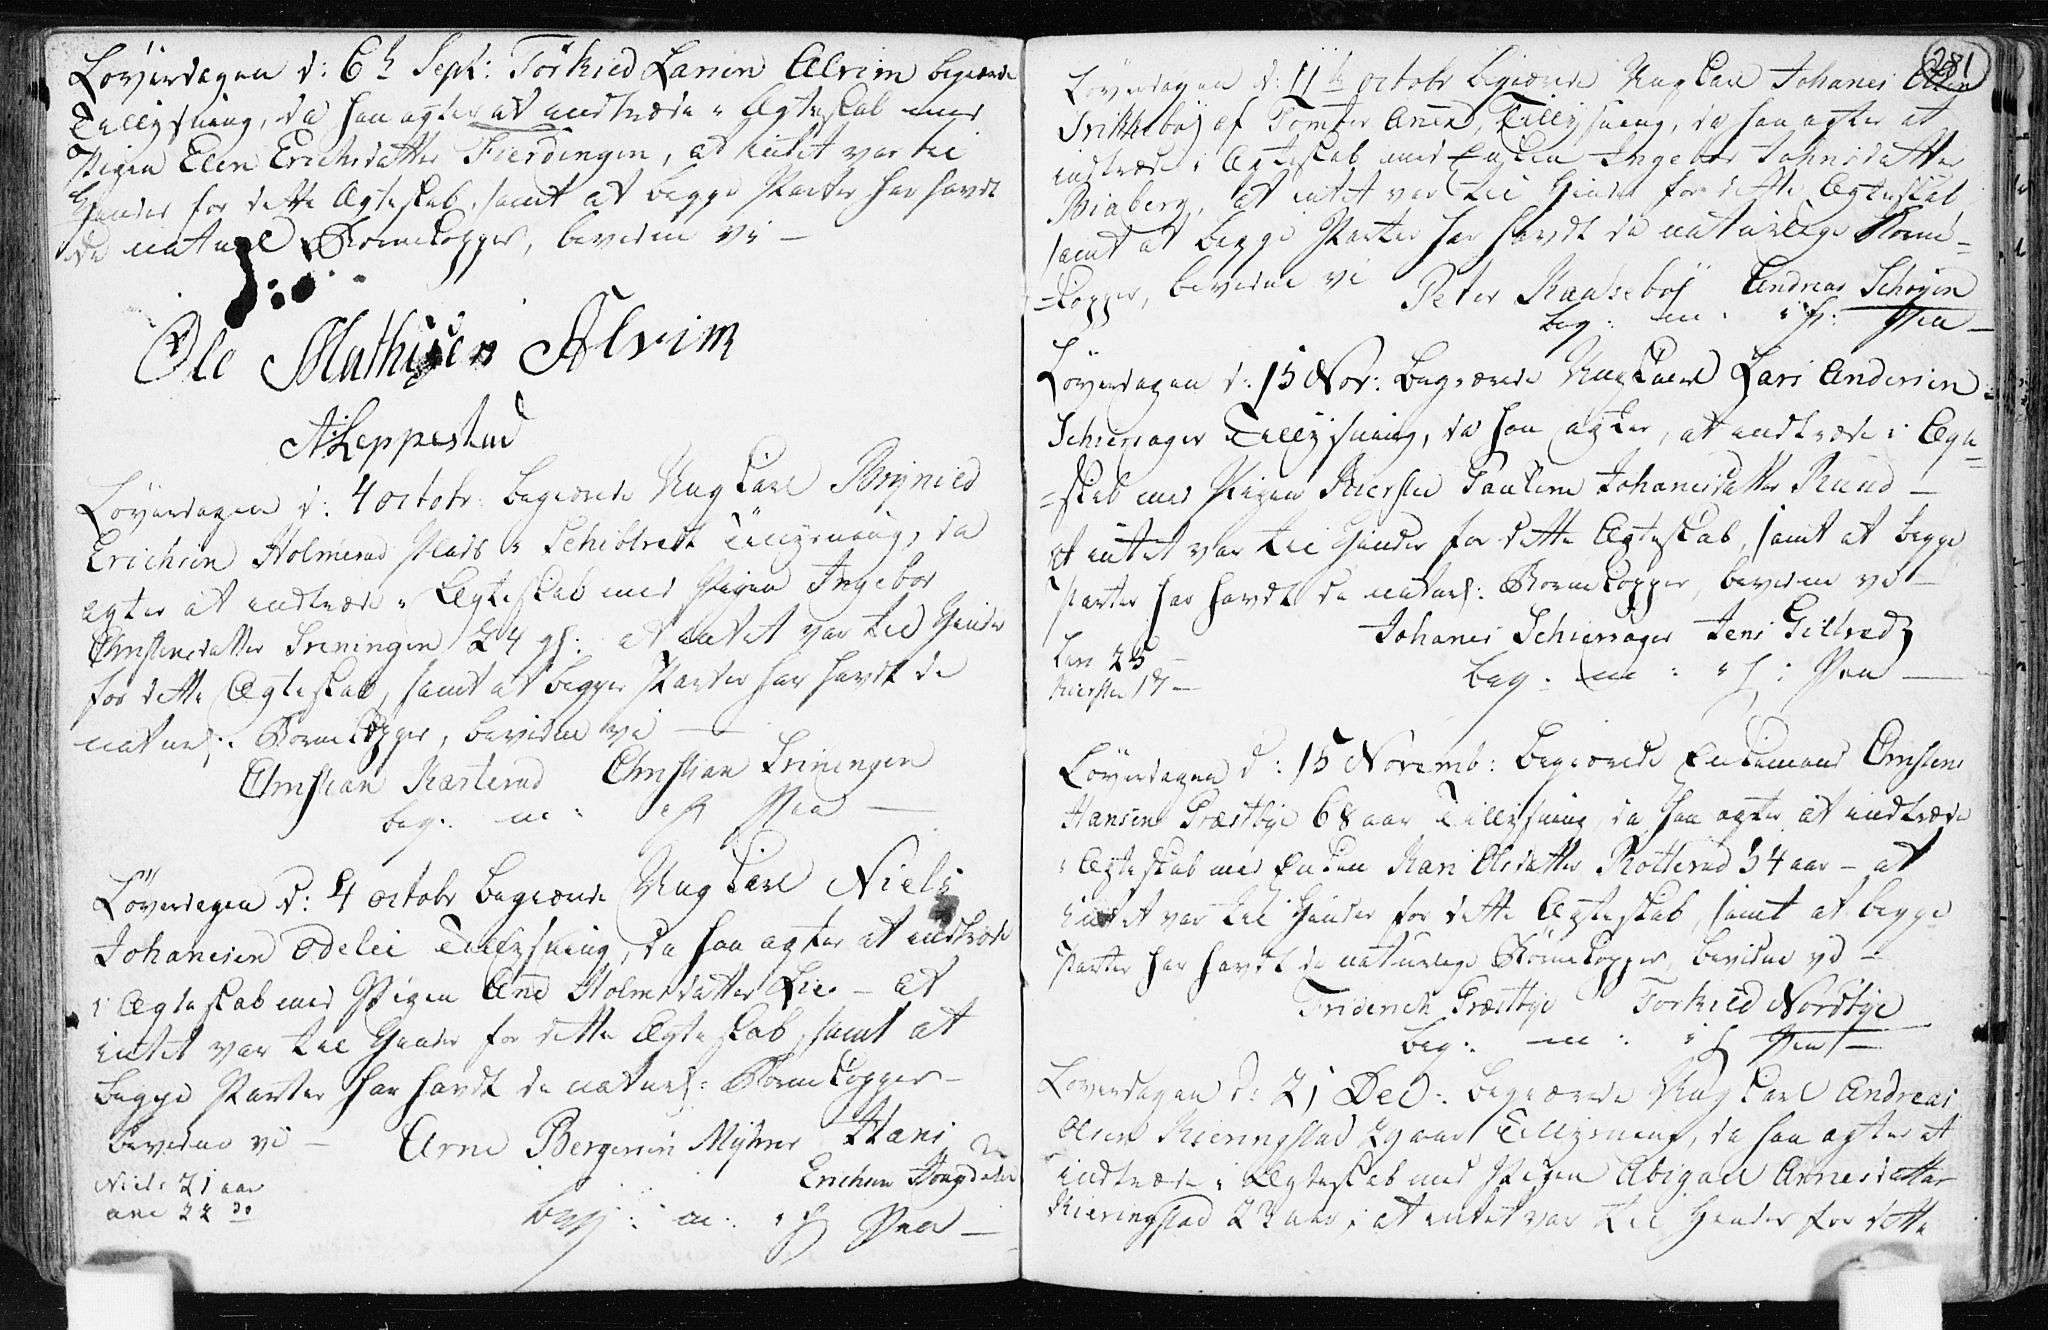 Løverdagen d: 6te Sept: Torkild Larsen Alvim begiærede
Tillysning, da han agter at indtræde i Ægteskab med
Pigen Elen Erichsdatter Fierdingen, at intet var til
Hinder for dette Ægteskab, samt at begge Parter har havdt
de naturl: Børnekopper, bevidne vi –
Ole Mathisen Alvim
A Leppestad
Løverdagen d: 4 octobr: begiærede Ung Karl Brynild
Erichsen Holmerud Plads Tillysning, da
agter at indtræde i Ægteskab med Pigen Ingebor
Christensdatter Sreningen 24 at intet var til Hinder
for dette Ægteskab, samt at begge Parter har havdt de
naturl: Børnekopper, bevidne vi –
Christian Karterud Christian Sreningen
beg: m: i H Pen –
Løverdagen d: 4 octobr begiærede Ung Karl Niels
Johanesen Odelie Tillysning, da han agter at indtræde
i Ægteskab med Pigen Ane Holmsdatter Lie – at
intet var til Hinder for dette Ægteskab, samt at
begge Parter har havdt de naturl: Børnekopper –
bevidne vi – Arne Bergersen Myhrer Hans
Erichsen
Niels 21 aar
ane 22 do
beg: m: i H Pen –
281
Løverdagen d: 11te octobr begiærede Ung Karl Johanes Olsen
af Tomter Anex, Tillysning, da han agter at
indtræde i Ægteskab med Enken Ingebor Johnsdatter
Biaberg, at intet var til Hinder for dette Ægteskab,
samt at begge Parter har havdt de naturlige Børne-
-kopper, bevidne vi Peter Kaasebøl Andreas Schøyen
beg: m: i H: Pen –
Løverdagen d: 15 Nov: begiærede Ung Karl Lars Andersen
Schierager Tillysning, da han agter, at indtræde i Ægte-
-skab med Pigen Kiersten Pauline Johanesdatter Rund –
at intet var til Hinder for dette Ægteskab, samt at begge
Parter har havdt de naturl: Børnekopper, bevidne vi –
Johanes Schierager Jens Gillund
Lars 25 –
Kiersten 17 –
beg: m: i H: Pen –
Løverdagen d: 15 Novemb: begiærede Enkemand Christen
Hansen Græstbye 68 aar Tillysning, da han agter at indtræde
i Ægteskab med Enken Kari Olsdatter Rotterud 54 aar – at
intet var til Hinder for dette Ægteskab, samt at begge
Parter har havdt de naturlige Børnekopper, bevidne vi –
Friderich Græstbye Torkild Nordbye
beg: m: i H Pen –
Løverdagen d: 21 Dec: begiærede Ung Karl Andreas
Olsen Kieringstad 29 aar Tillysning, da han agter at
indtræde i Ægteskab med Pigen Abigael Arnesdatter
Kieringstad 23 aar, at intet var til Hinder for dette